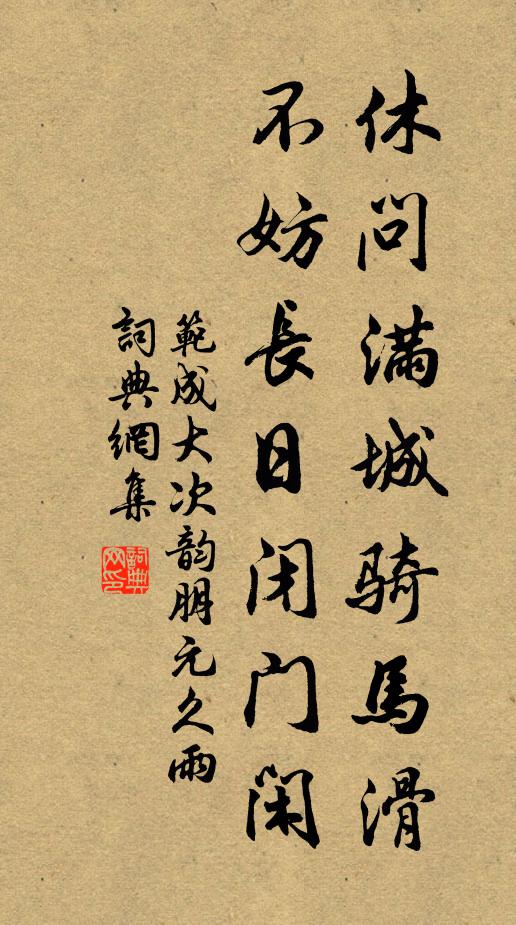 休問滿城騎馬滑
不妨長日闭门閑
範成大次韵朋元久雨
詞典網集
詞典
网印